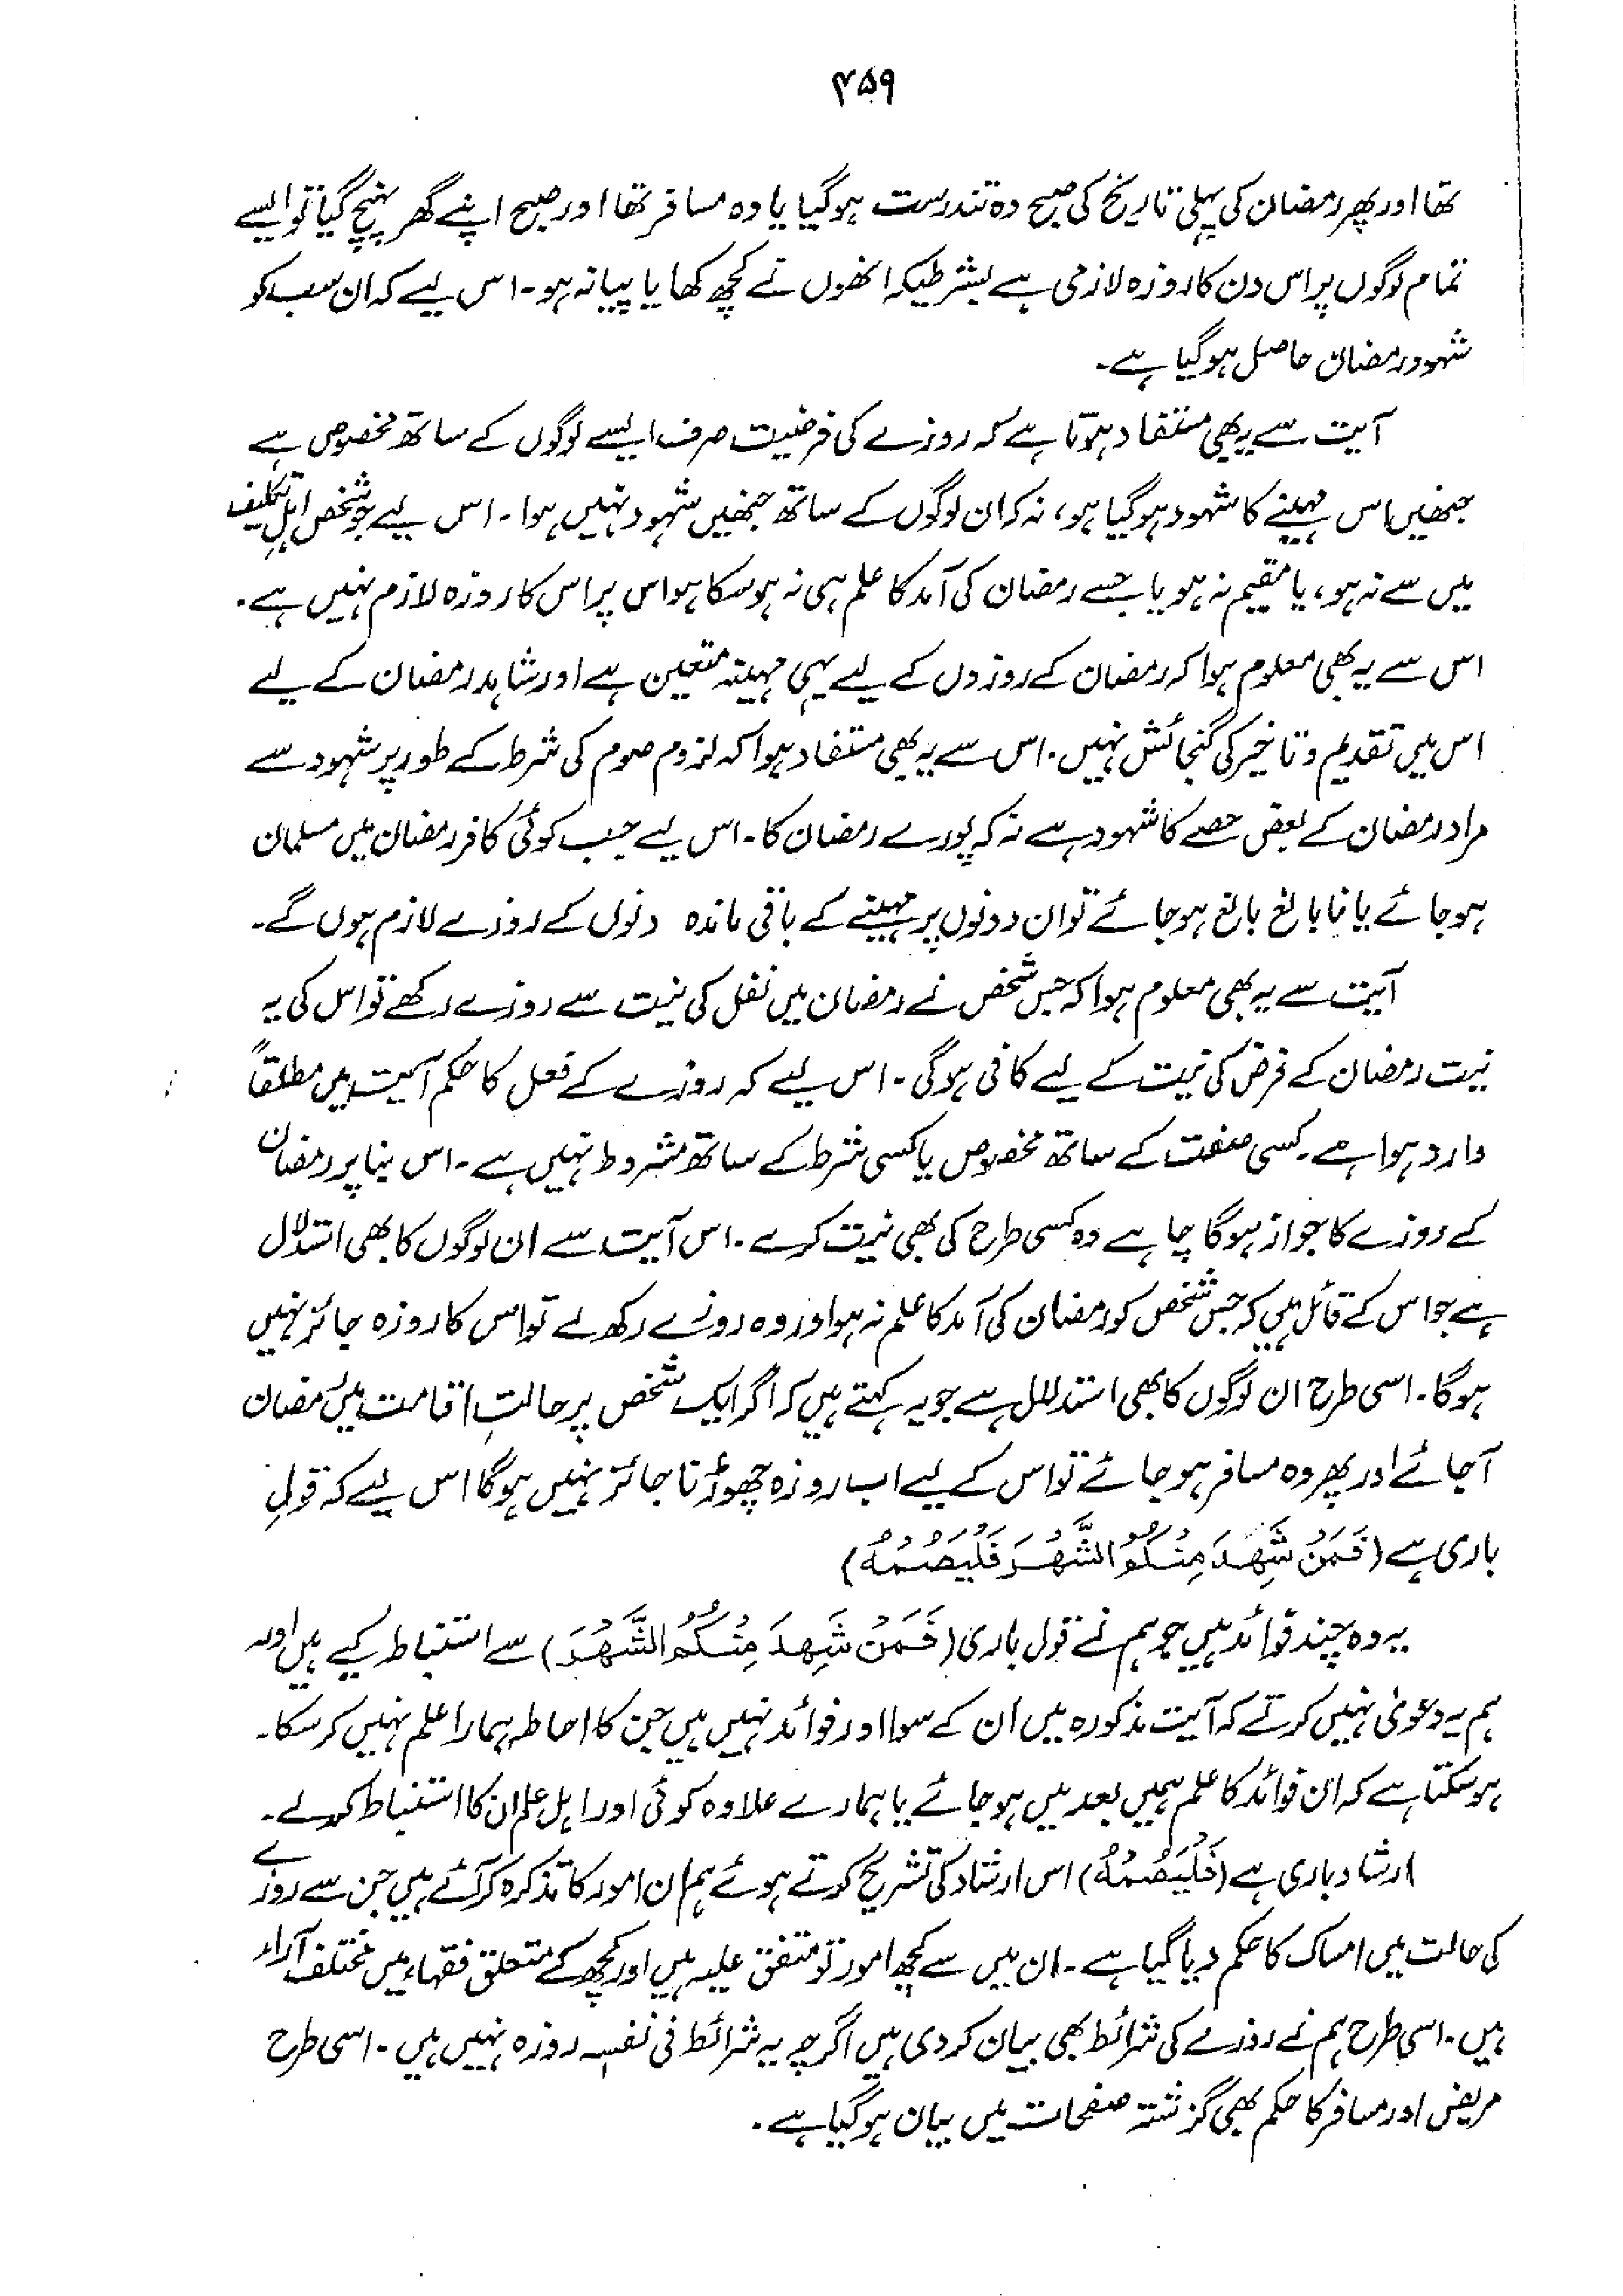 ۴۵۹
تھا اور پھر رمضان کی پہلی تاریخ کی صبح وہ تندرست ہوگیا یا وہ مسافر تھا اور صبح اپنے گھر پہنچ گیا تو ایسے
تمام لوگوں پر اس دن کا روزہ لازمی ہے بشرطیکہ انھوں نے کچھ کھایا پیا نہ ہو۔ اس لیے کہ ان سب کو
شہود رمضان حاصل ہوگیا ہے۔
آیت سے یہ بھی مستفاد ہوتا ہے کہ روزے کی فرضیت صرف ایسے لوگوں کے ساتھ مخصوص ہے
جنھیں اس مہینے کا شہود ہوگیا ہو، نہ کہ ان لوگوں کے ساتھ جنھیں شہود نہیں ہوا۔ اس لیے جو شخص اہلِ تکلیف
میں سے نہ ہو، یا مقیم نہ ہو یا جسے رمضان کی آمد کا علم ہی نہ ہوسکا ہو اس پر اس کا روزہ لازم نہیں ہے۔
اس سے یہ بھی معلوم ہوا کہ رمضان کے روزوں کے لیے یہی مہینہ متعین ہے اور شاہد رمضان کے لیے
اس میں تقدیم و تاخیر کی گنجائش نہیں۔ اس سے یہ بھی مستفاد ہوا کہ لزوم صوم کی شرط کے طور پر شہود سے
مراد رمضان کے بعض حصے کا شہود ہے نہ کہ پورے رمضان کا۔ اس لیے جب کوئی کافر رمضان میں مسلمان
ہوجائے یا نابالغ بالغ ہوجائے تو ان دونوں پر مہینے کے باقی ماندہ دنوں کے روزے لازم ہوں گے۔
آیت سے یہ بھی معلوم ہوا کہ جس شخص نے رمضان میں نفل کی نیت سے روزے رکھے تو اس کی یہ
نیت رمضان کے فرض کی نیت کے لیے کافی ہوگی۔ اس لیے کہ روزے کے فعل کا حکم آیت میں مطلقاً
وارد ہوا ہے۔ کسی صفت کے ساتھ مخصوص یا کسی شرط کے ساتھ مشروط نہیں ہے۔ اس بنا پر رمضان
کے روزے کا جواز ہوگا چاہے وہ کسی طرح کی بھی نیت کرے۔ اس آیت سے ان لوگوں کا بھی استدلال
ہے جو اس کے قائل ہیں کہ جس شخص کو رمضان کی آمد کا علم نہ ہو اور وہ روزے رکھ لے تو اس کا روزہ جائز نہیں
ہوگا۔ اسی طرح ان لوگوں کا بھی استدلال ہے جو یہ کہتے ہیں کہ اگر ایک شخص پر حالتِ اقامت میں رمضان
آجائے اور پھر وہ مسافر ہوجائے تو اس کے لیے اب روزہ چھوڑنا جائز نہیں ہوگا اس لیے کہ قولِ
باری ہے (فَمَنْ شَهِدَ مِنْكُمُ الشَّهْرَ فَلْيَصُمْهُ)
یہ وہ چند فوائد ہیں جو ہم نے قول باری (فَمَنْ شَهِدَ مِنْكُمُ الشَّهْرَ) سے استنباط کیے ہیں اور
ہم یہ دعویٰ نہیں کرتے کہ آیت مذکورہ میں ان کے سوا اور فوائد نہیں ہیں جن کا احاطہ ہمارا علم نہیں کرسکا۔
ہوسکتا ہے کہ ان فوائد کا علم ہمیں بعد میں ہوجائے یا ہمارے علاوہ کوئی اور اہل علم ان کا استنباط کرلے۔
ارشاد باری ہے (فَلْيَصُمْهُ) اس ارشاد کی تشریح کرتے ہوئے ہم ان امور کا تذکرہ کر آئے ہیں جن سے روزے
کی حالت میں امساک کا حکم دیا گیا ہے۔ ان میں سے کچھ امور تو متفق علیہ ہیں اور کچھ کے متعلق فقہاء میں مختلف آراء
ہیں۔ اسی طرح ہم نے روزے کی شرائط بھی بیان کر دی ہیں اگرچہ یہ شرائط فی نفسہ روزہ نہیں ہیں۔ اسی طرح
مریض اور مسافر کا حکم بھی گزشتہ صفحات میں بیان ہوگیا ہے۔